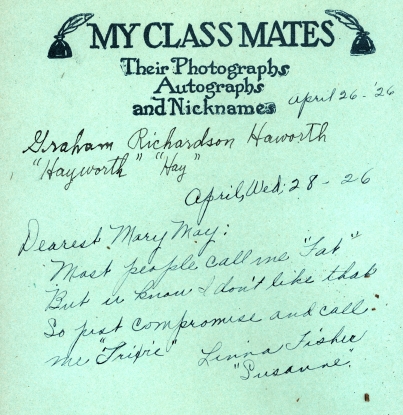 MY CLASS MATES
Their Photographs
Autographs
and Nicknames
April 26-'26
Graham Richardson Haworth
"Hayworth" "Hay"
April, Wed. 28 - 26
Dearest Mary May:
Most people call me "Fat"
But u know I don't like that
So just compromise and call
me "Trixie" Linna Fisher
"Susanne"